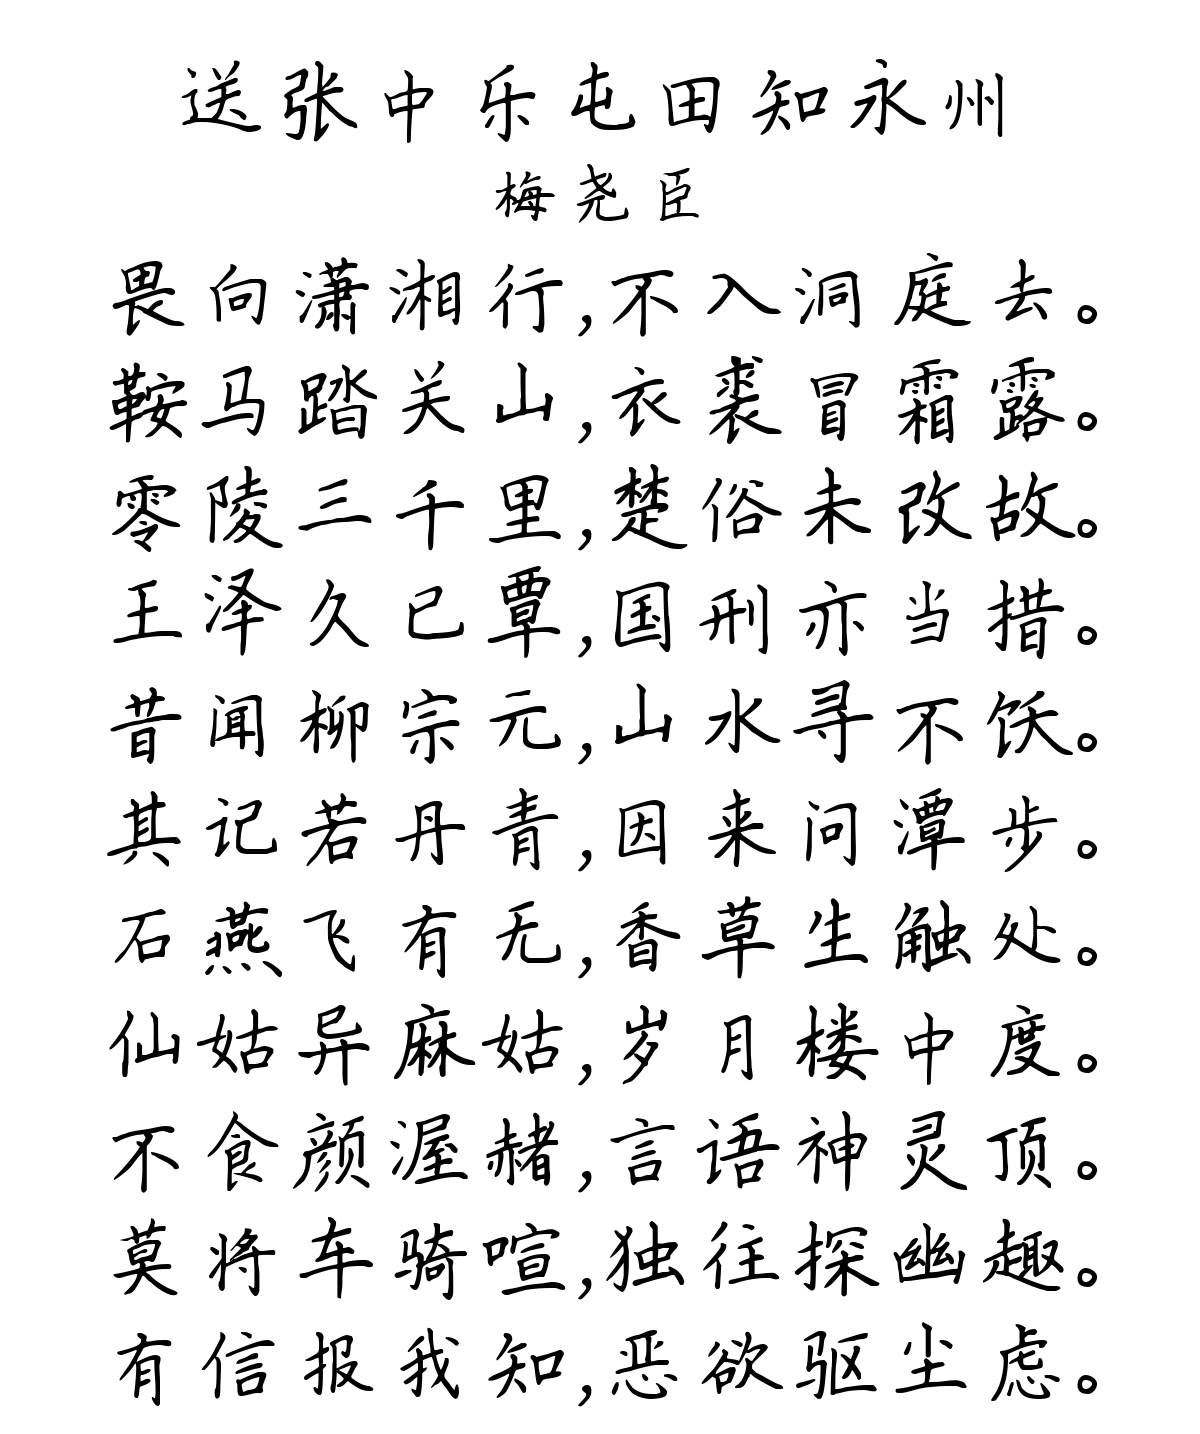 送张中乐屯田知永州
梅尧臣
畏向潇湘行,不入洞庭去。
鞍马踏关山,衣裘冒霜露。
零陵三千里,楚俗未改故。
王泽久已覃,国刑亦当措。
昔闻柳宗元,山水寻不饫。
其记若丹青,因来问潭步。
石燕飞有无,香草生触处。
仙姑异麻姑,岁月楼中度。
不食颜渥赭,言语神灵顶。
莫将车骑喧,独往探幽趣。
有信报我知,恶欲驱尘虑。